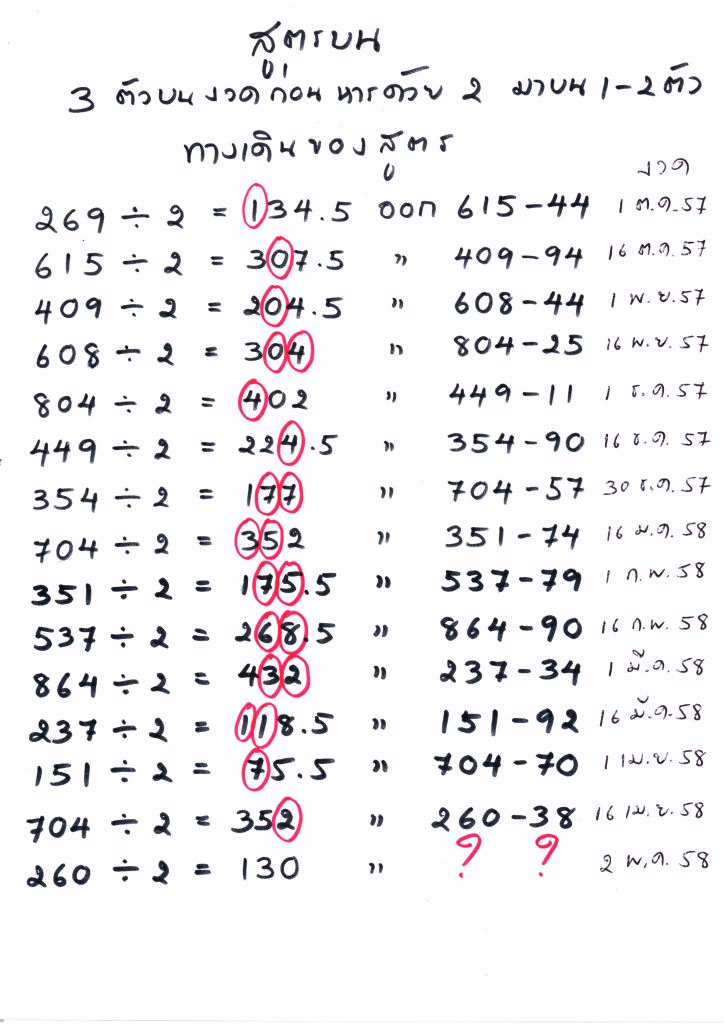 สูตรบน
3 ตัวบน งวดก่อน หารด้วย 2 มาบน 1-2 ตัว
ทางเดินของสูตร
งวด
269 ÷ 2 = 134.5 ออก 615-44 1 ต.ค.57
615 ÷ 2 = 307.5 " 409-94 16 ต.ค.57
409 ÷ 2 = 204.5 " 608-44 1 พ.ย.57
608 ÷ 2 = 304 " 804-25 16 พ.ย.57
804 ÷ 2 = 402 " 449-11 1 ธ.ค.57
449 ÷ 2 = 224.5 " 354-90 16 ธ.ค.57
354 ÷ 2 = 177 " 704-57 30 ธ.ค.57
704 ÷ 2 = 352 " 351-74 16 ม.ค.58
351 ÷ 2 = 175.5 " 537-79 1 ก.พ.58
537 ÷ 2 = 268.5 " 864-90 16 ก.พ.58
864 ÷ 2 = 432 " 237-34 1 มี.ค.58
237 ÷ 2 = 118.5 " 151-92 16 มี.ค.58
151 ÷ 2 = 75.5 " 704-70 1 เม.ย.58
704 ÷ 2 = 352 " 260-38 16 เม.ย.58
260 ÷ 2 = 130 " ? ? 2 พ.ค.58